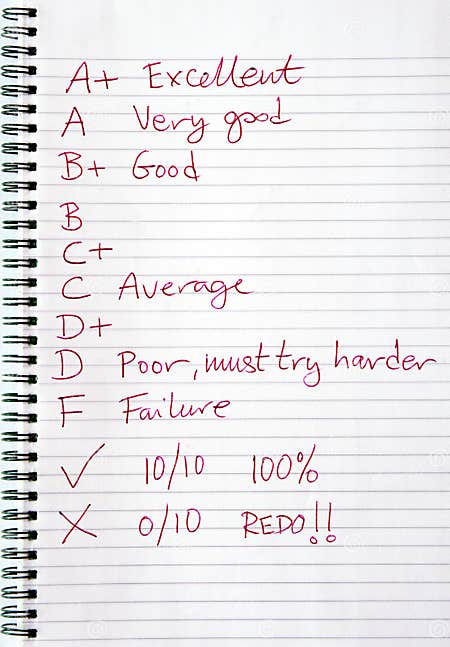 A+ Excellent
A Very good
B+ Good
B
C+
C Average
D+
D Poor, must try harder
F Failure
✓ 10/10 100%
✗ 0/10 REDO!!